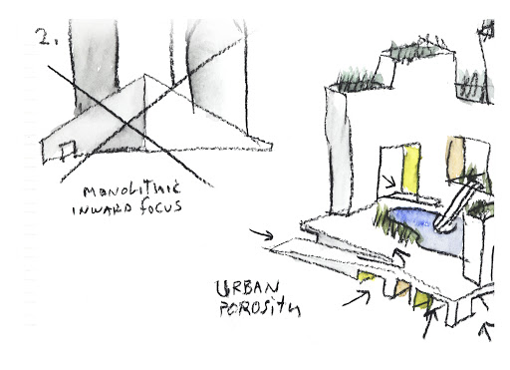 2.
MONOLITHIC
INWARD FOCUS
URBAN
POROSITY